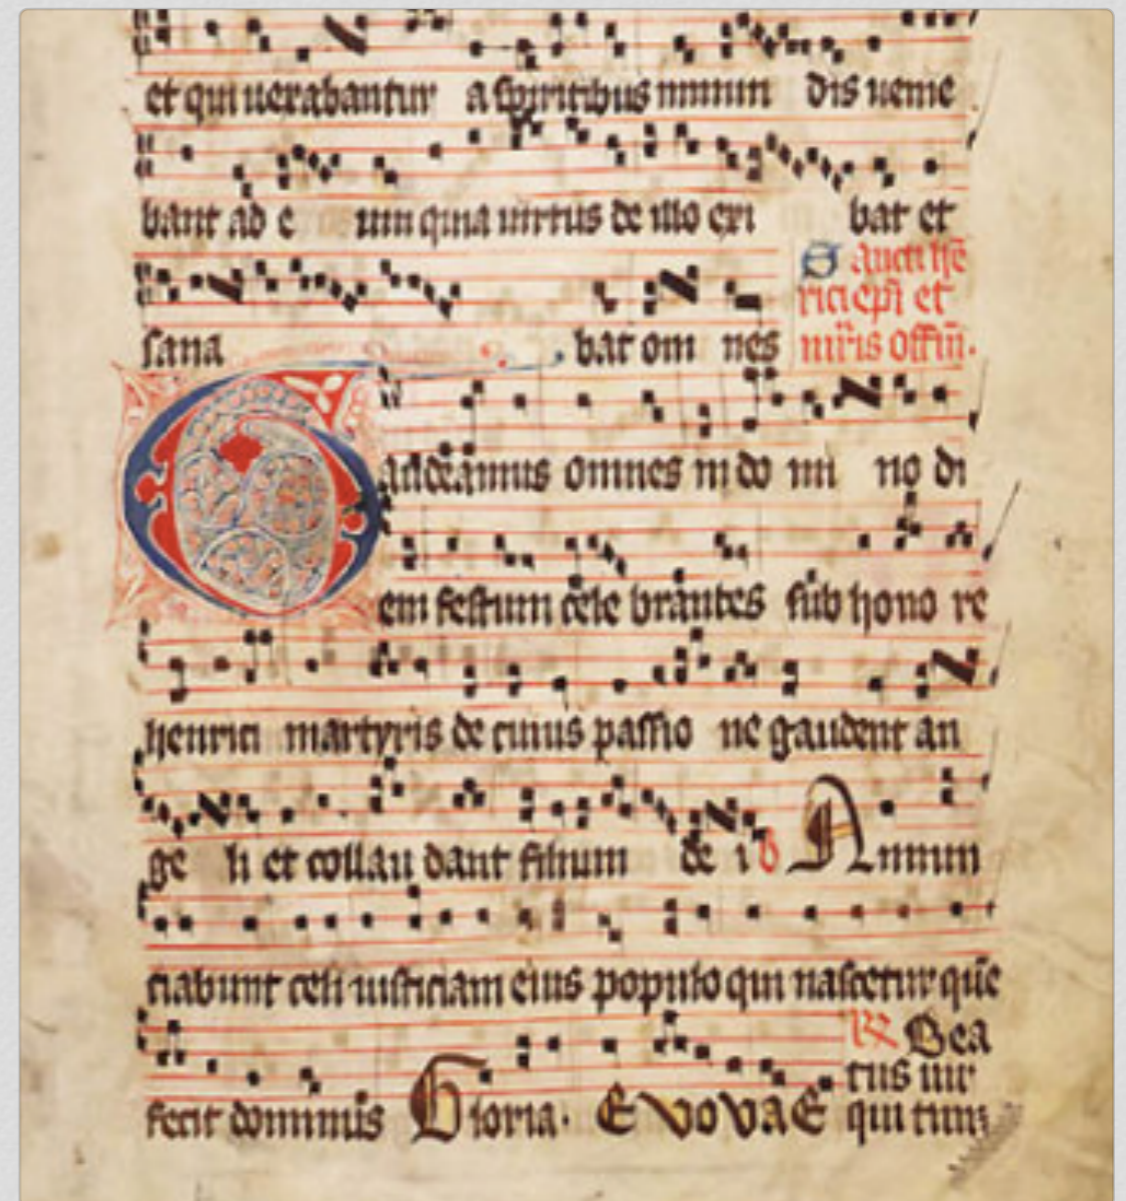 et qui uexabantur a spiritibus inmun dis uenie
bant ad e um quia uirtus de illo exi bat et
Sancti hē
rici epī et
sana bat om nes mr̄is offm̄.
Gaudeamus omnes in do mi no di
em festum cele brantes sub hono re
henrici martyris de cuius passio ne gaudent an
ge li et collau dant filium de i Annun
ciabunt celi iusticiam eius populo qui nascetur quē
Bea
tus uir
fecit dominus Gloria. EVOVAE qui tim